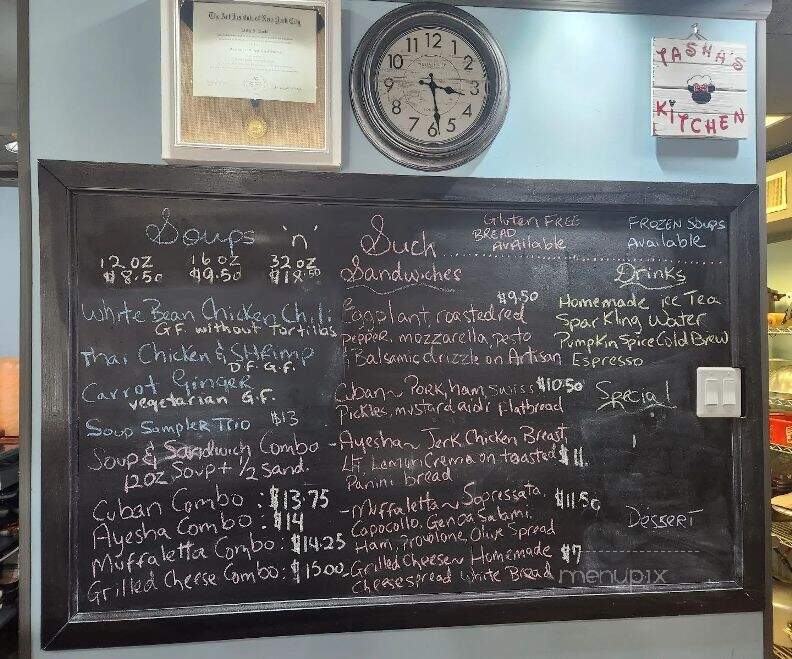 The Art Institute of New York City
YASHA'S
KITCHEN
12 1 2 3 4 5 6 7 8 9 10 11
Soups 'n'
Such
12 oz 16 oz 32 oz
$8.50 $9.50 $18.50
White Bean Chicken Chili
G.F. without tortillas
Thai Chicken & SHRimp
D.F. G.F.
Carrot Ginger
vegetarian G.F.
Soup Sampler Trio $13
Soup & Sandwich Combo
12oz Soup + 1/2 Sand.
Cuban Combo : $13.75
Ayesha Combo : $14
Muffaletta Combo : $14.25
Grilled Cheese Combo : $15.00
Gluten FREE
BREAD
Available
Sandwiches
$9.50
Eggplant, roasted red
pepper, mozzarella, pesto
Balsamic drizzle on Artisan
Cuban ~ Pork, ham, swiss $10.50
Pickles, mustard aioli flatbread
- Ayesha ~ Jerk Chicken Breast,
LT, Lemon Crema on toasted $11
Panini bread
- Muffaletta ~ Sopressata, $11.50
Capocollo, Genoa Salami,
Ham, Provolone, Olive Spread
- Grilled Cheese ~ Homemade $7
Cheese spread White Bread
FROZEN SOUPS
Available
Drinks
Homemade ice Tea
Sparkling water
Pumpkin Spice Cold Brew
Espresso
Special
Dessert
menupix